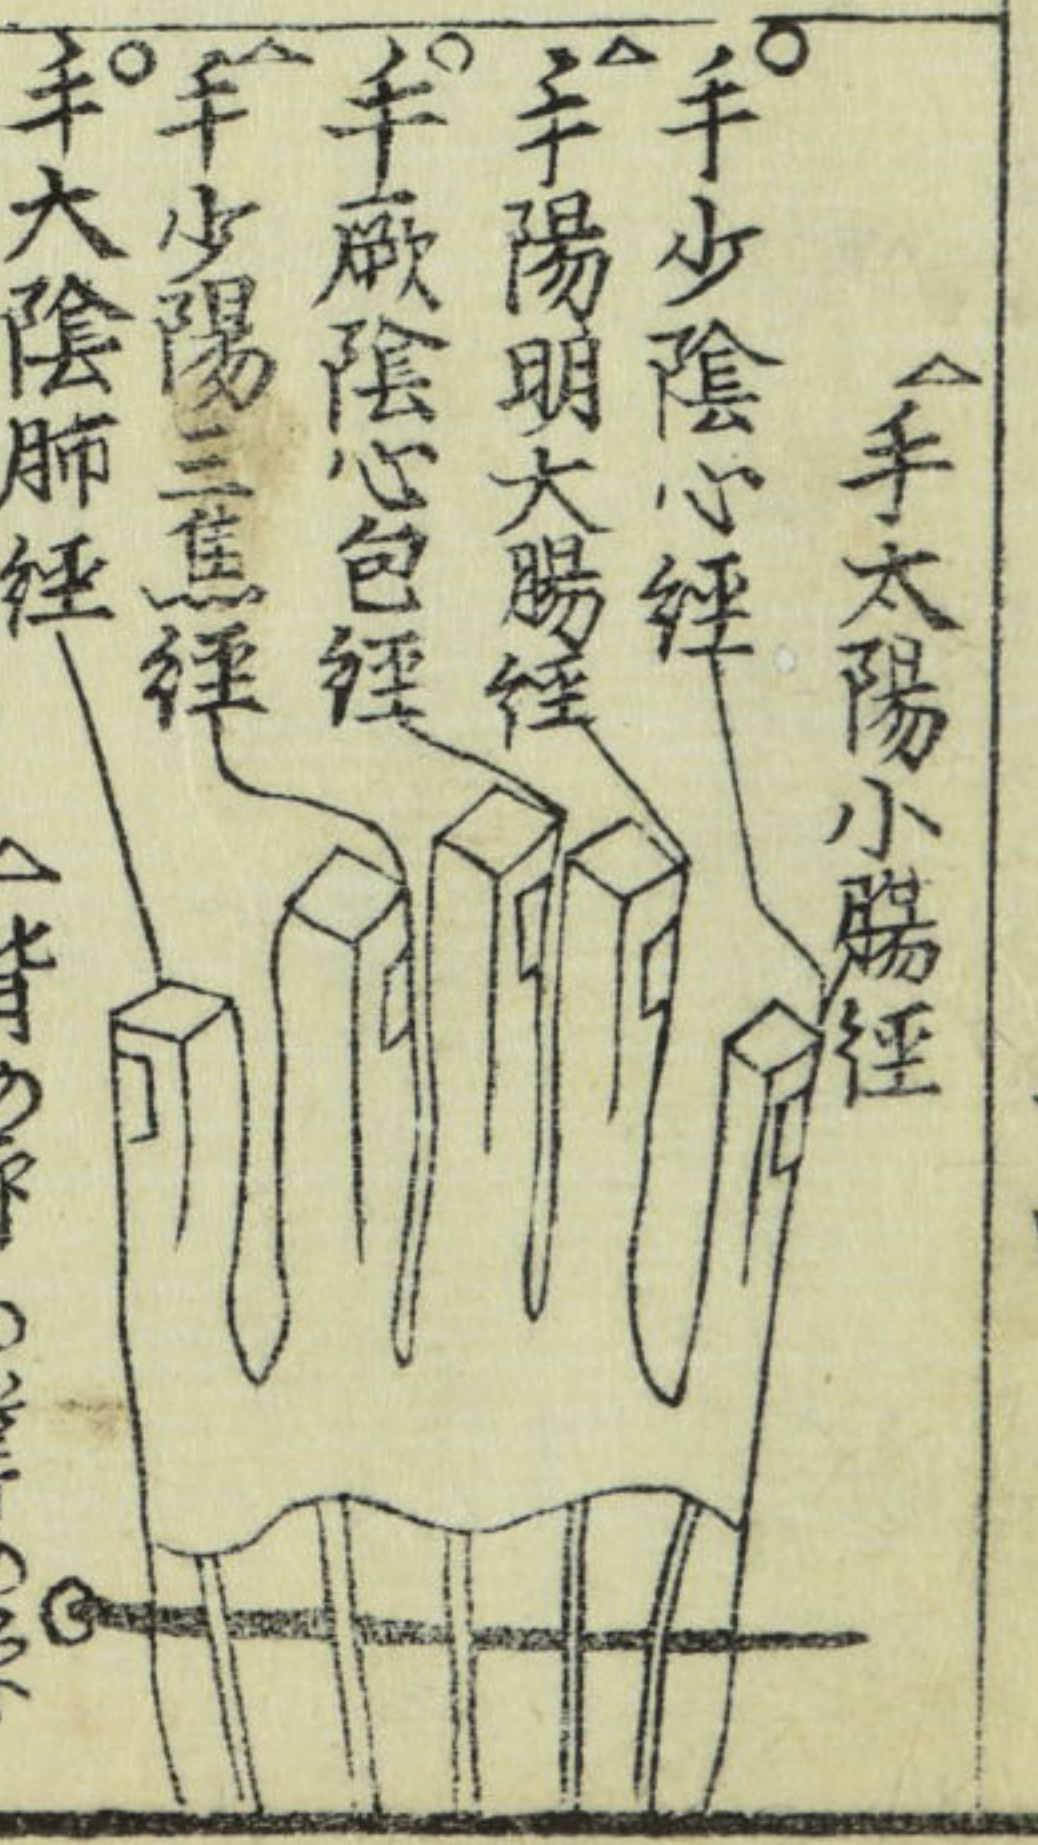 △手太陽小腸經
○手少陰心經
△手陽明大腸經
○手厥陰心包經
△手少陽三焦經
○手大陰肺經